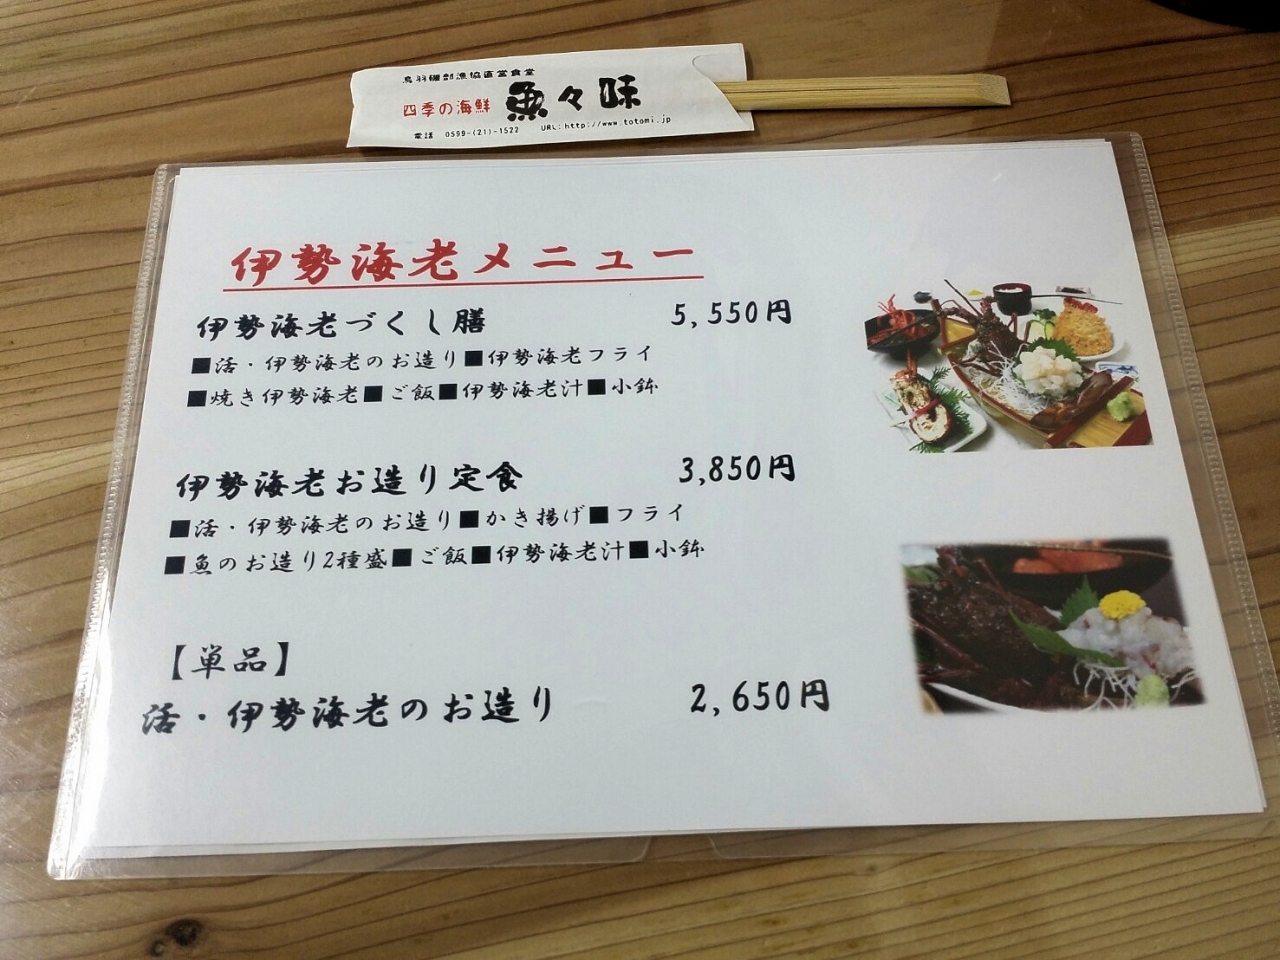 鳥羽磯部漁協直営食堂
四季の海鮮 魚々味
電話 0599-(21)-1522 URL:http://www.totomi.jp
伊勢海老メニュー
伊勢海老づくし膳 5,550円
■活・伊勢海老のお造り■伊勢海老フライ
■焼き伊勢海老■ご飯■伊勢海老汁■小鉢
伊勢海老お造り定食 3,850円
■活・伊勢海老のお造り■かき揚げ■フライ
■魚のお造り2種盛■ご飯■伊勢海老汁■小鉢
【単品】
活・伊勢海老のお造り 2,650円